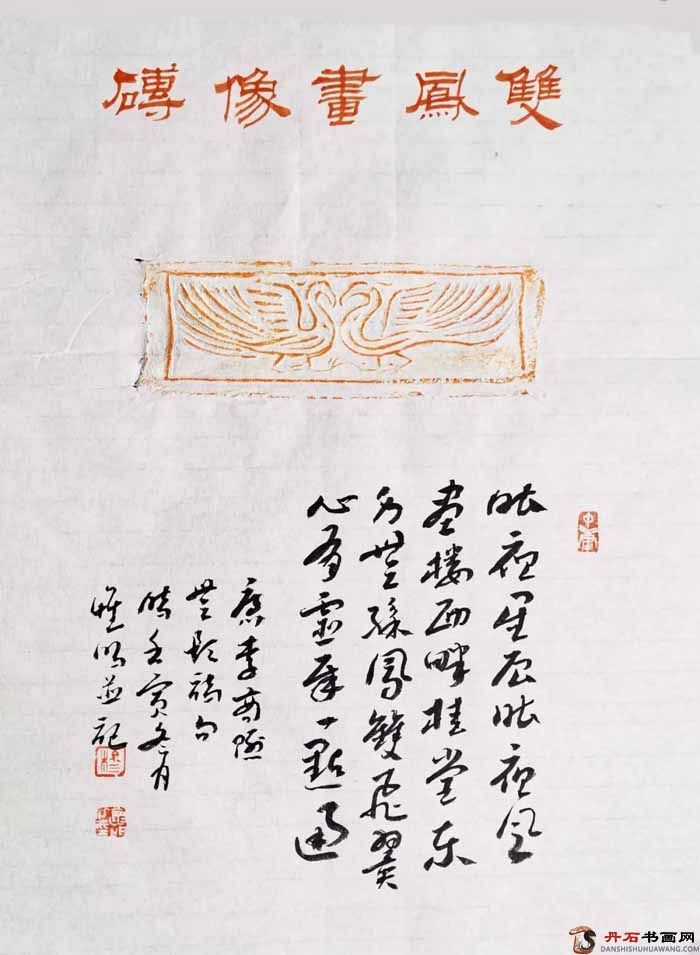 雙鳳畫像磚
昨夜星辰昨夜風
畫樓西畔桂堂東
身無彩鳳雙飛翼
心有靈犀一點通
唐李商隱
無題詩句
時壬寅冬月
並記
丹石书画网
DANSHISHUHUAWANG.COM